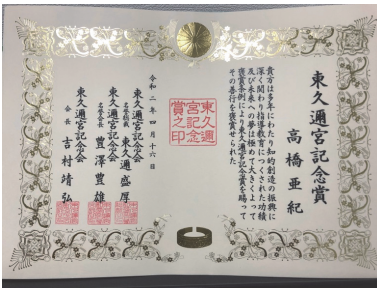 東久邇宮記念賞
高橋亜紀
貴方は多年にわたり知的創造の振興に
深く関わり指導教育につくされた功績
及び未来への夢は極めて大きくよって
褒賞条例により東久邇宮記念賞を賜って
その善行を褒賞せられた
東久邇
宮記念
賞之印
令和二年四月十六日
東久邇宮記念会
東久邇盛厚
東久邇宮記念会
名誉会長 豊澤豊雄
東久邇宮記念会
会長 吉村靖弘